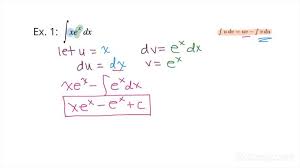 Ex. 1: ∫ xeˣ dx
∫ u dv = uv − ∫ v du
let u = x dv = eˣ dx
du = dx v = eˣ
xeˣ − ∫ eˣ dx
xeˣ − eˣ + c